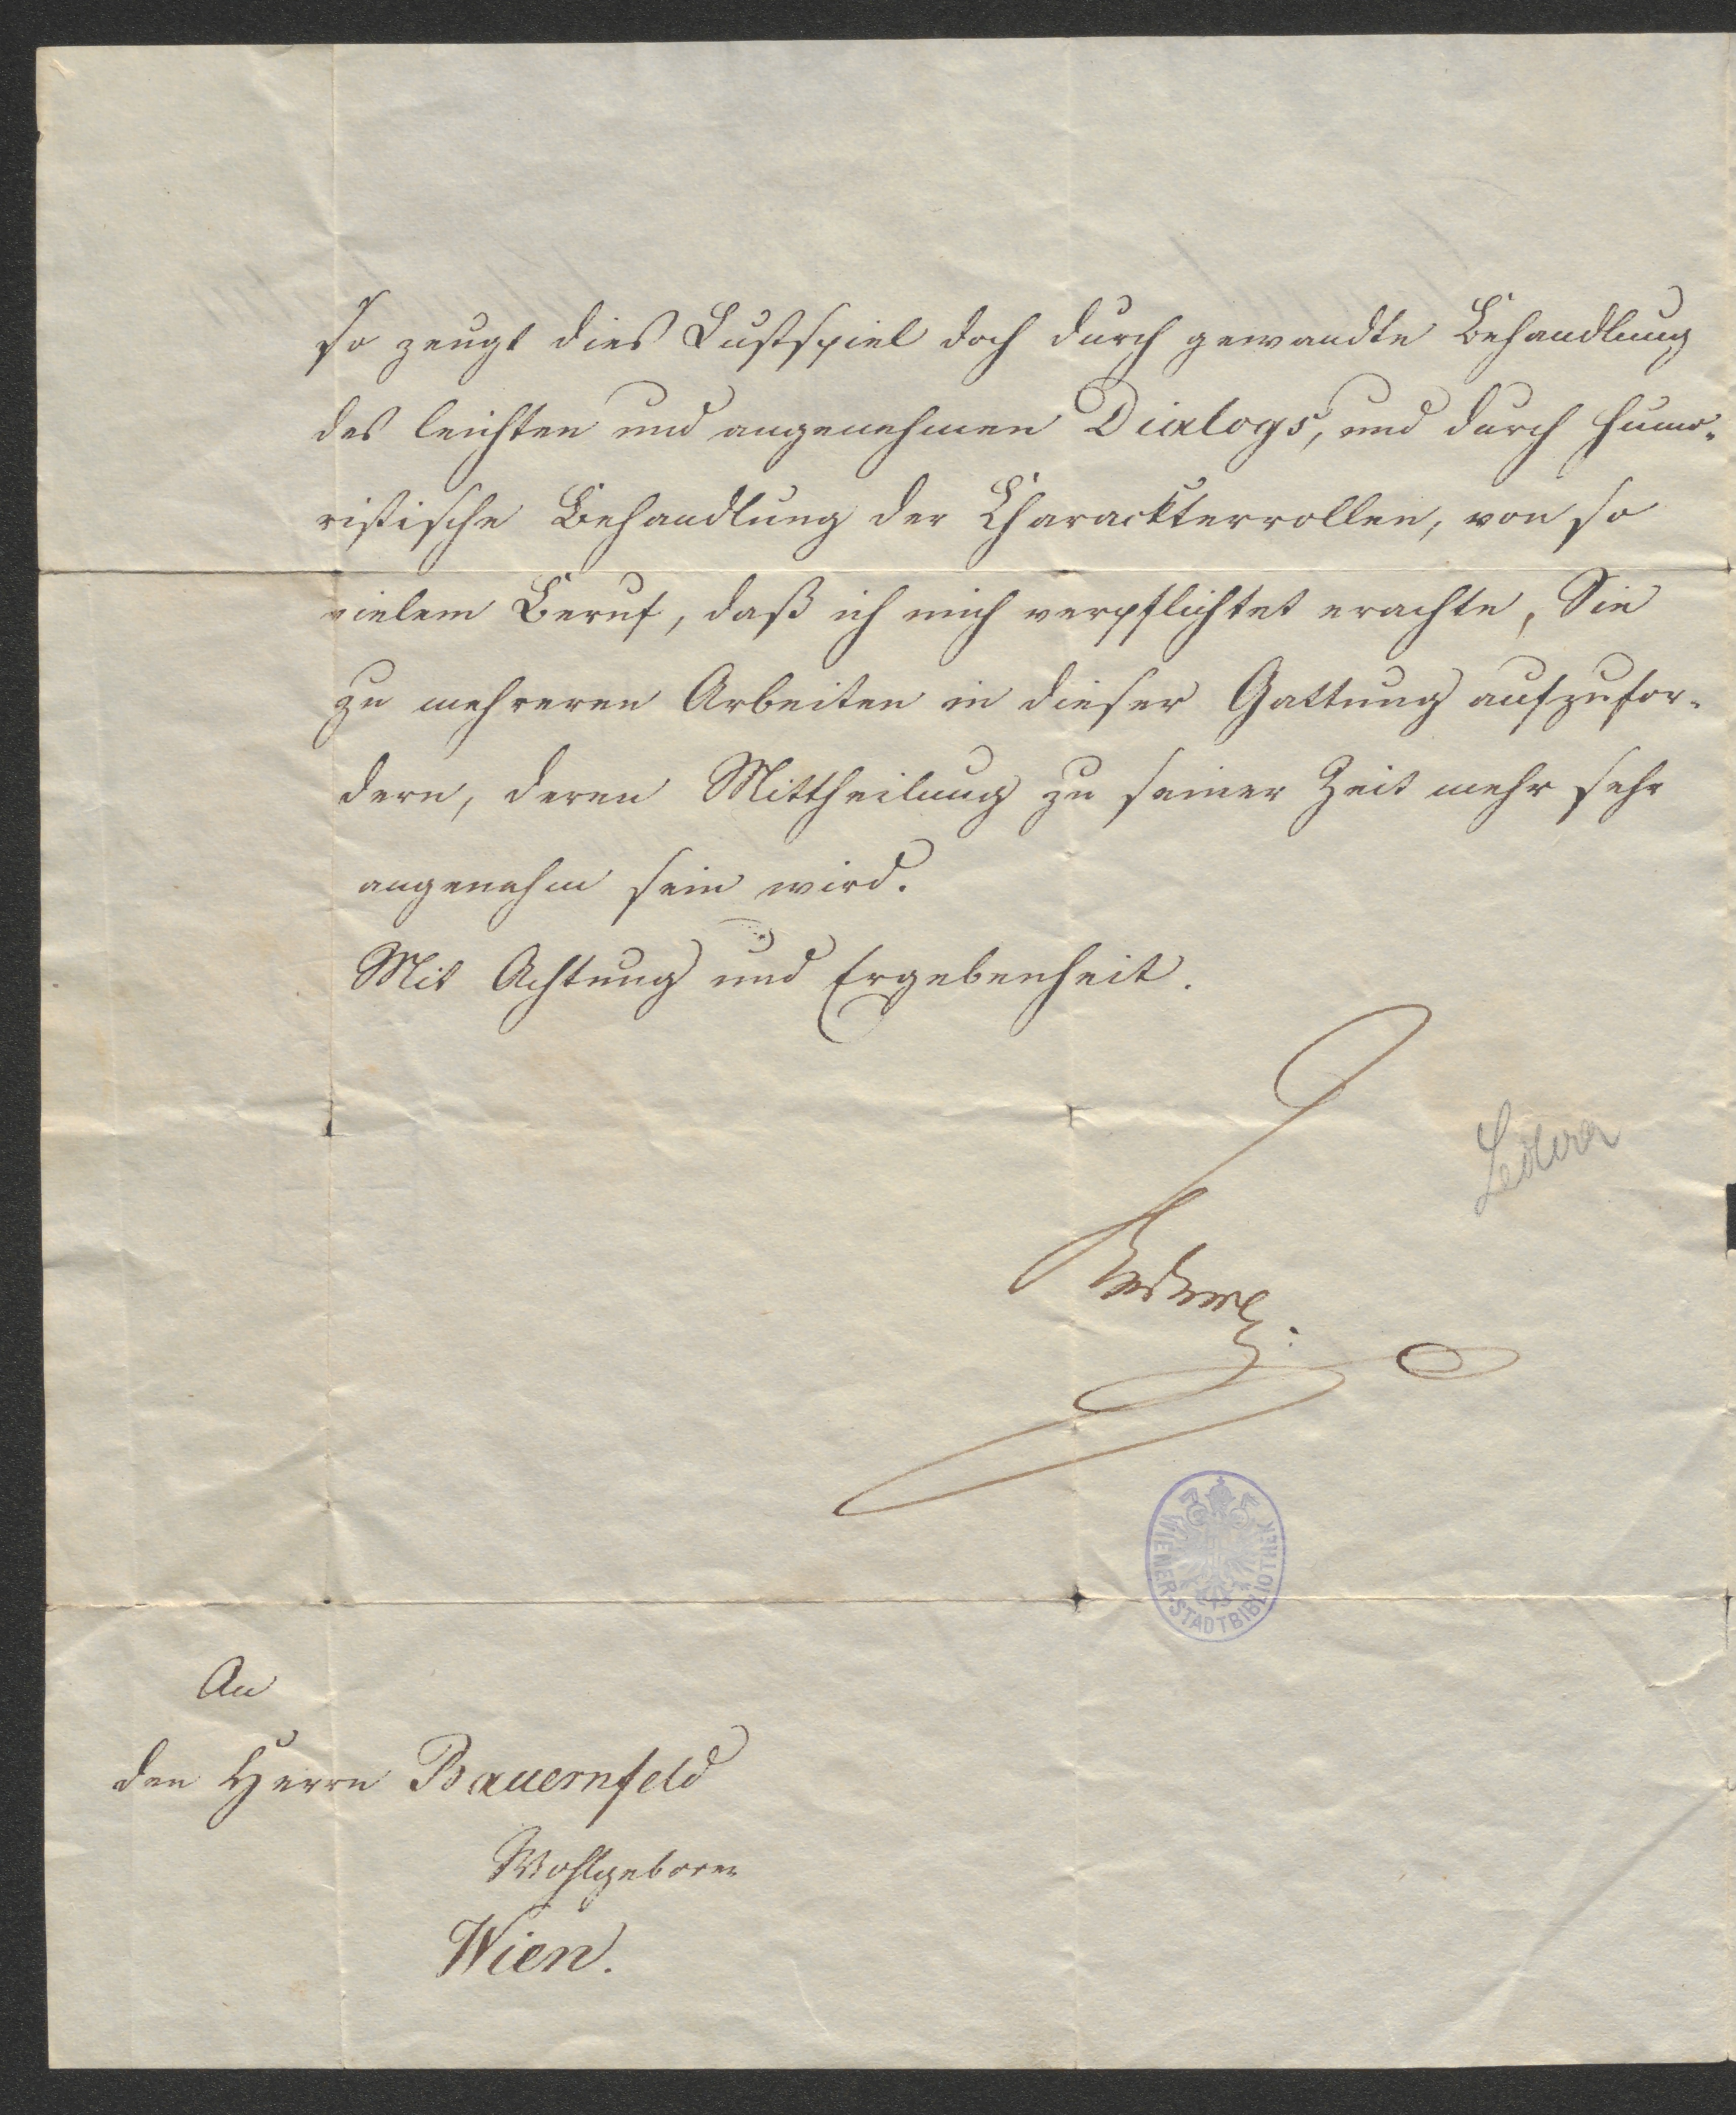 so zeugt dies Lustspiel doch durch gewandte Behandlung
des leichten und angenehmen Dialogs, und durch humo-
ristische Behandlung der Charackterrollen, von so
vielem Beruf, daß ich mich verpflichtet erachte, Sie
zu mehreren Arbeiten in dieser Gattung aufzufor-
dern, deren Mittheilung zu seiner Zeit mehr sehr
angenehm sein wird.
Mit Achtung und Ergebenheit.
Lederer
WIENER-STADTBIBLIOTHEK
An
den Herrn Bauernfeld
Wohlgeboren
Wien.